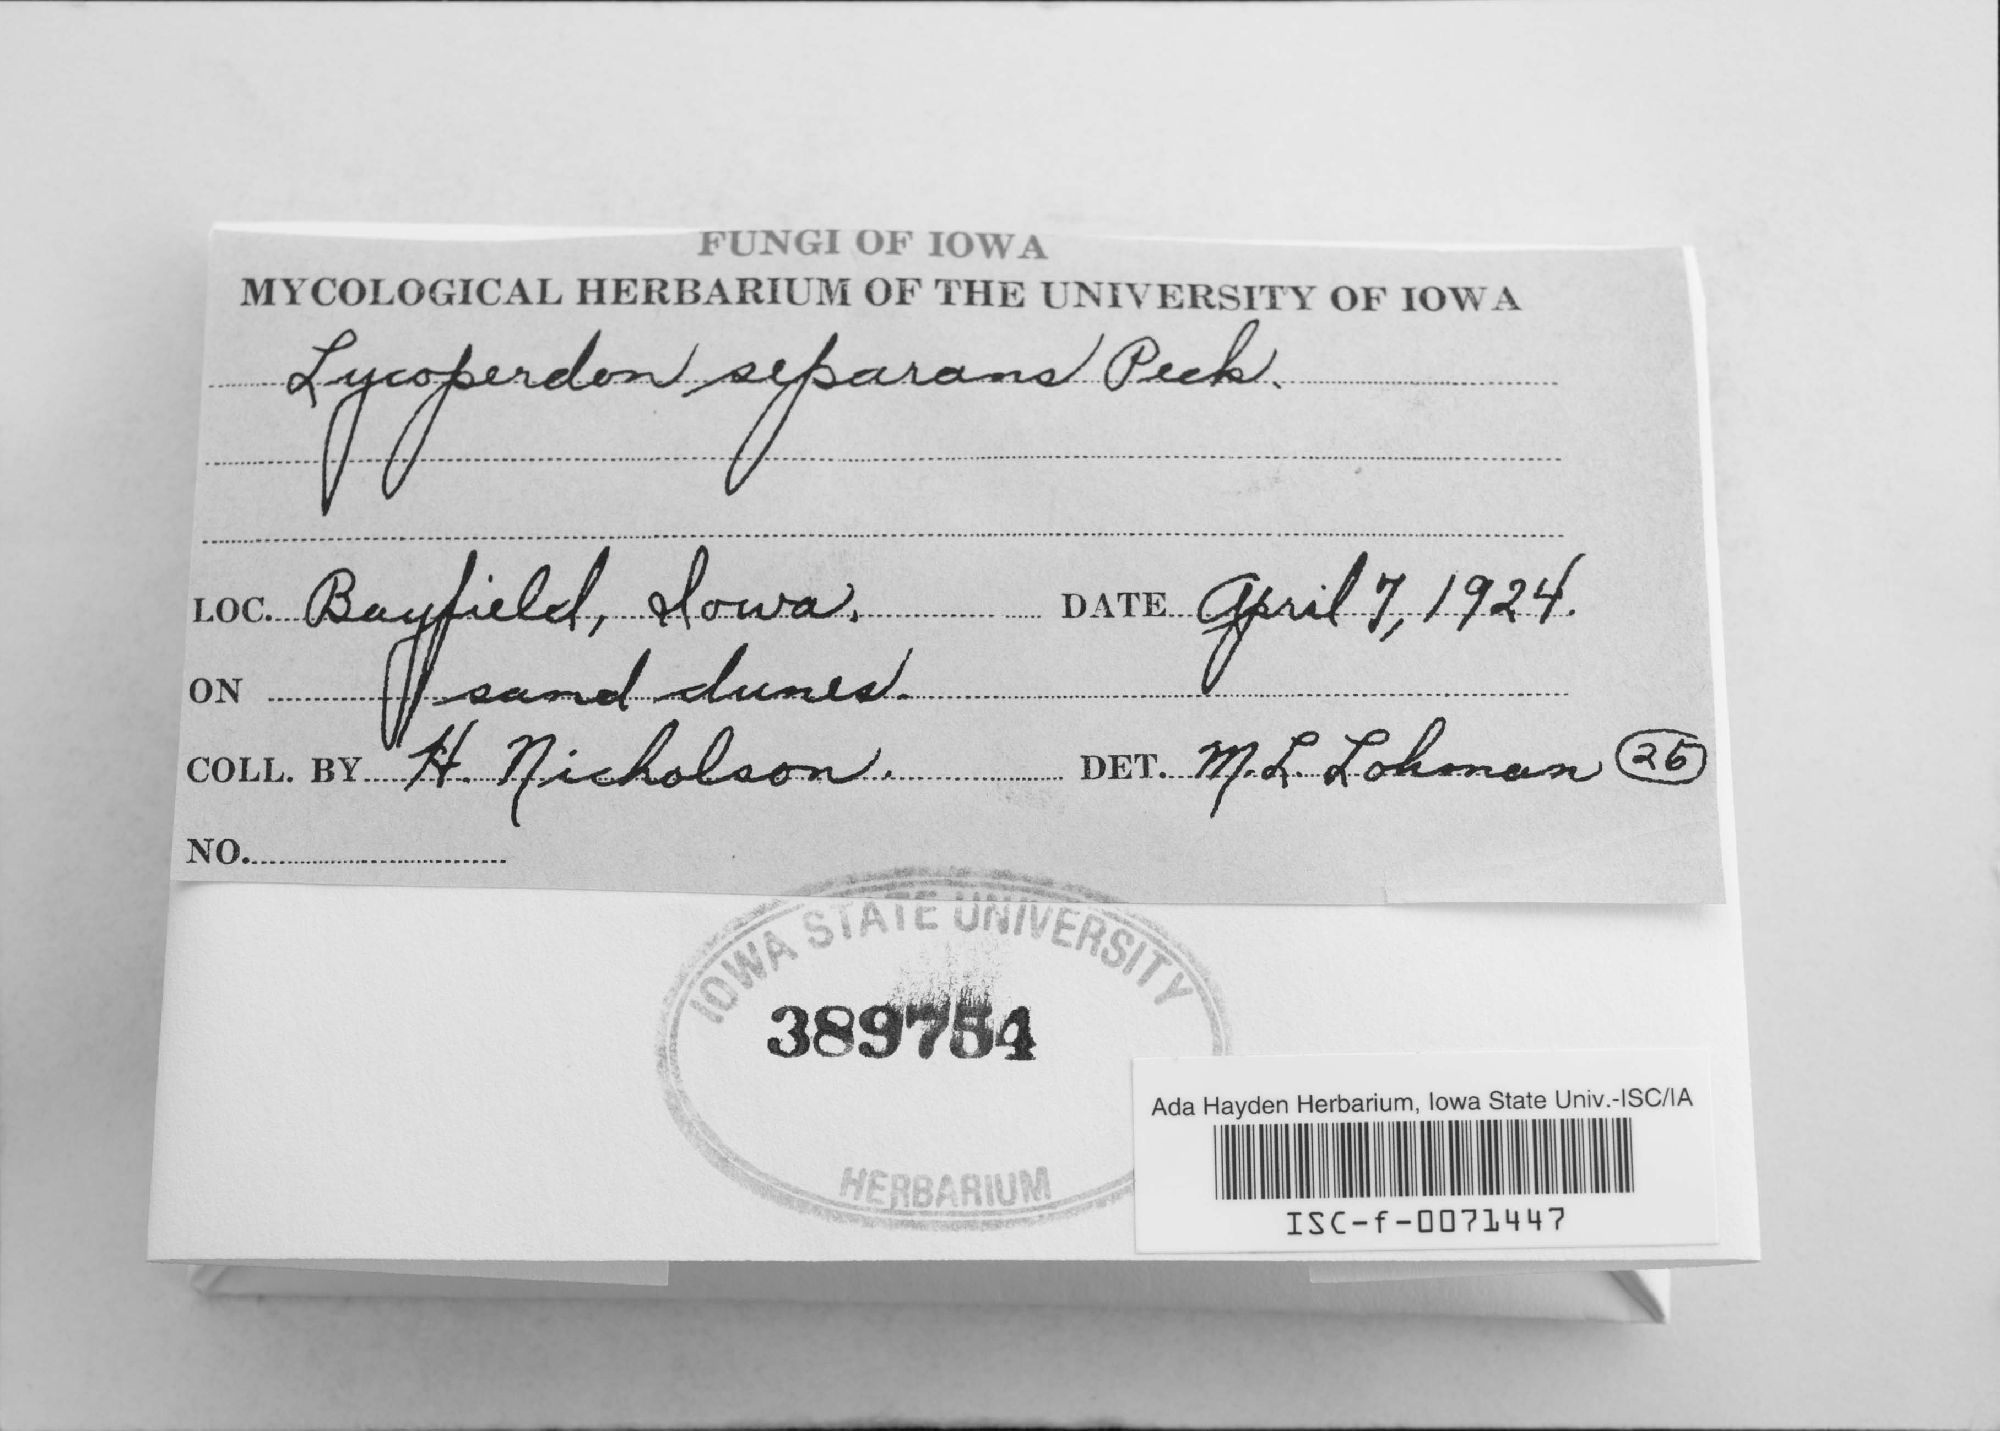 FUNGI OF IOWA
MYCOLOGICAL HERBARIUM OF THE UNIVERSITY OF IOWA
Lycoperdon separans Peck.
LOC. Bayfield, Iowa. DATE April 7, 1924.
ON sand dunes.
COLL. BY H. Nicholson. DET. M. L. Lohman 25
NO.
IOWA STATE UNIVERSITY
389754
HERBARIUM
Ada Hayden Herbarium, Iowa State Univ.-ISC/IA
ISC-f-0071447